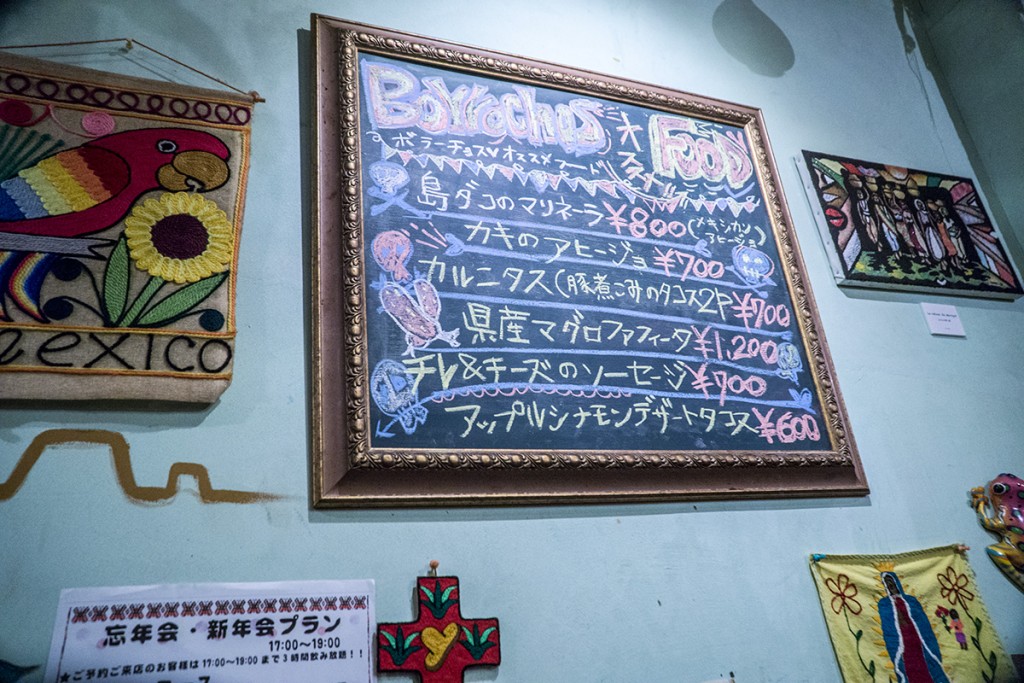 Borrachos Food
ボラーチョス オススメフード
島ダコのマリネーラ ¥800 (メキシカンアヒージョ)
カキのアヒージョ ¥700
カルニタス(豚煮こみのタコス2P ¥700
県産マグロファフィータ ¥1,200
チレ&チーズのソーセージ ¥700
アップルシナモンデザートタコス ¥600
mexico
忘年会・新年会プラン
17:00〜19:00
★ご予約ご来店のお客様は17:00〜19:00まで3時間飲み放題!!